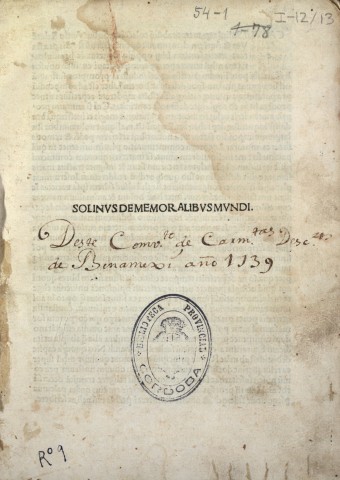 54-1
1-78
I-12/13
SOLINVS DE MEMORALIBVS MVNDI.
Deste Comv.te de Carm.tas Desc.os
de Benamexi, año 1739
BIBLIOTECA PROVINCIAL
CORDOBA
Rº 9